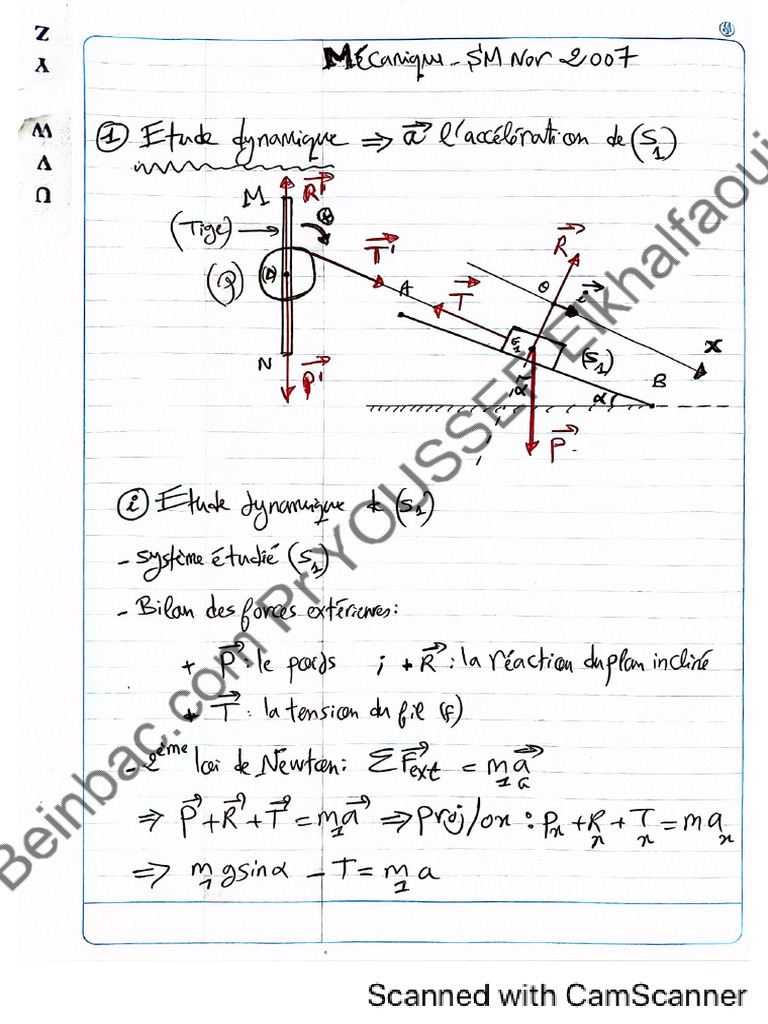 Z Y W V U
Mécanique - SM Nor 2007
① Etude dynamique ⇒ a⃗ l'accélération de (S₁)
M R⃗'
(Tige) ⊕
R⃗
T⃗'
(P) (Δ) A T⃗ O i⃗
G₁ (S₁) x
N P⃗' α α B
P⃗
ⓘ Etude dynamique de (S₁)
- système étudié (S₁)
- Bilan des forces extérieures:
+ P⃗ : le poids ; + R⃗ : la réaction du plan incliné
+ T⃗ : la tension du fil (f)
- 2ème loi de Newton: ΣF⃗ext = m₁a⃗G
⇒ P⃗ + R⃗ + T⃗ = m₁a⃗ ⇒ proj/ox : Px + Rx + Tx = m ax
⇒ m₁ g sin α - T = m₁ a
Beinbac.com Pr YOUSSEF Elkhalfaoui
Scanned with CamScanner